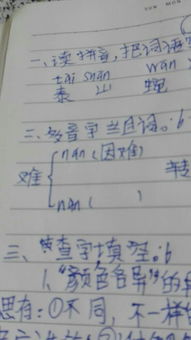 一、读拼音,把词语
tài shān wān
泰 山
二、多音字组词。6
难 nán(困难)
转
nàn( )
三、查字填空。6
1、“颜色各异”的
思有:①不同,不一样